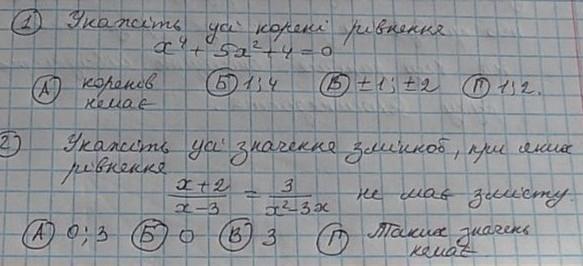 1 Укажіть усі корені рівняння
x⁴ + 5x² + 4 = 0
А коренів немає Б 1; 4 В ±1; ±2 Г 1; 2.
2) Укажіть усі значення змінної, при яких
рівняння
(x+2)/(x-3) = 3/(x²-3x) не має змісту.
А 0; 3 Б 0 В 3 Г Таких значень немає